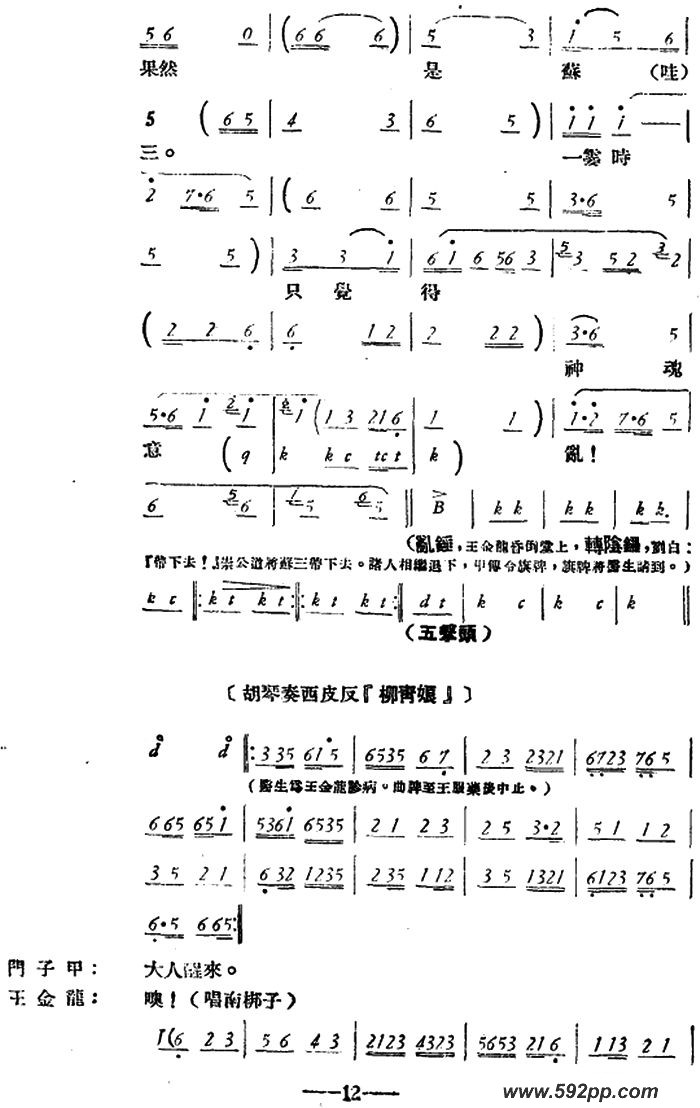 5 6 0 | ( 6 6 6 ) | 5 3 | i 5 6 |
果然 是 蘇 (哇)
5 ( 6 5 | 4 3 | 6 5 ) | i i i — |
三。 一霎時
2 7·6 5 | ( 6 6 | 5 5 | 3·6 5 |
5 5 ) | 3 3 i | 6 i 6 56 3 | 5 3 5 2 3 2 |
只覺得
( 2 2 6 | 6 1 2 | 2 2 2 ) | 3·6 5 |
神 魂
5·6 i 2 i | i ( 1 3 216 | 1 1 ) | i·2 7·6 5 |
意 ( q | k k c tc t | k ) 亂!
6 5 6 | 1 5 6 5 || B | k k | k k | k k. |
(亂錘,王金龍昏倒堂上,轉陰鑼,劉白:
『帶下去!』崇公道將蘇三帶下去。諸人相繼退下,甲傳令旗牌,旗牌將醫生請到。)
k c |: k t k t :|: k t k t :| d t | k c | k c | k ||
(五擊頭)
〔胡琴奏西皮反『柳青娘』〕
d d |: 3 35 61 5 | 6535 6 7 | 2 3 2321 | 6723 76 5 |
(醫生爲王金龍診病。曲牌至王服藥後中止。)
6 65 65 i | 536i 6535 | 2 1 2 3 | 2 5 3·2 | 5 1 1 2 |
3 5 2 1 | 6 32 1235 | 2 35 1 12 | 3 5 1321 | 6123 76 5 |
6·5 6 65 :|
門子甲: 大人醒來。
王金龍: 噢!(唱南梆子)
(6 2 3 | 5 6 4 3 | 2123 4323 | 5653 21 6 | 1 13 2 1 |
—12—
www.592pp.com